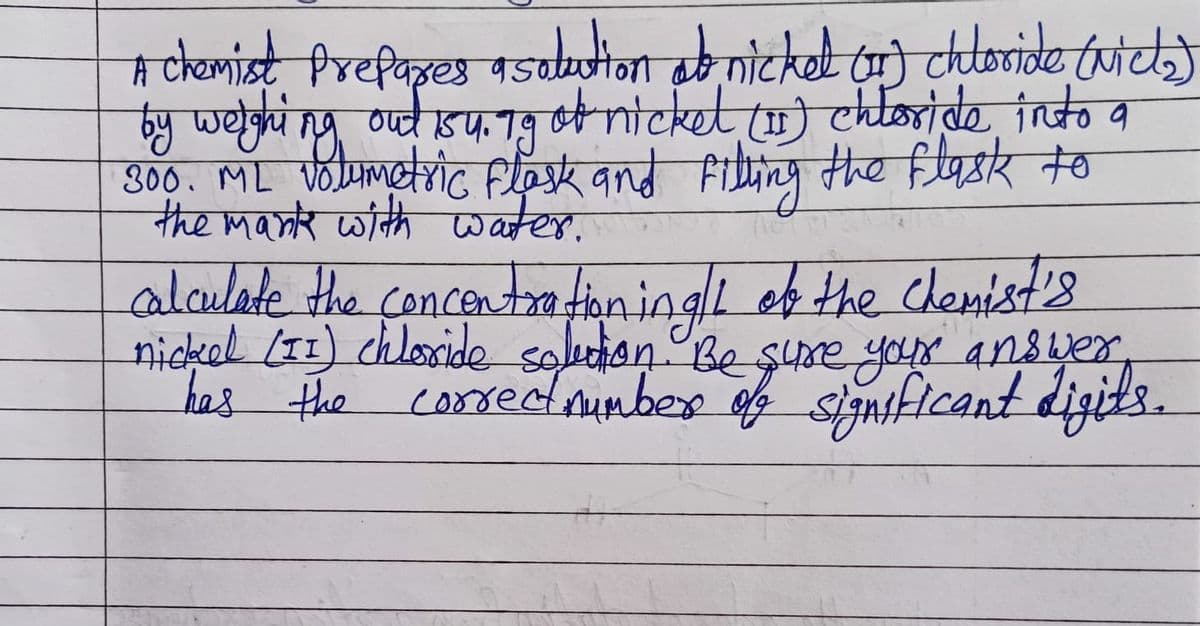 A chemist Prepares a solution of nickel (II) chloride (NiCl₂)
by weighing out 154.7g of nickel (II) chloride into a
300. ML volumetric flask and filling the flask to
the mark with water.
calculate the concentration in g/L of the chemist's
nickel (II) chloride solution. Be sure your answer
has the correct number of significant digits.